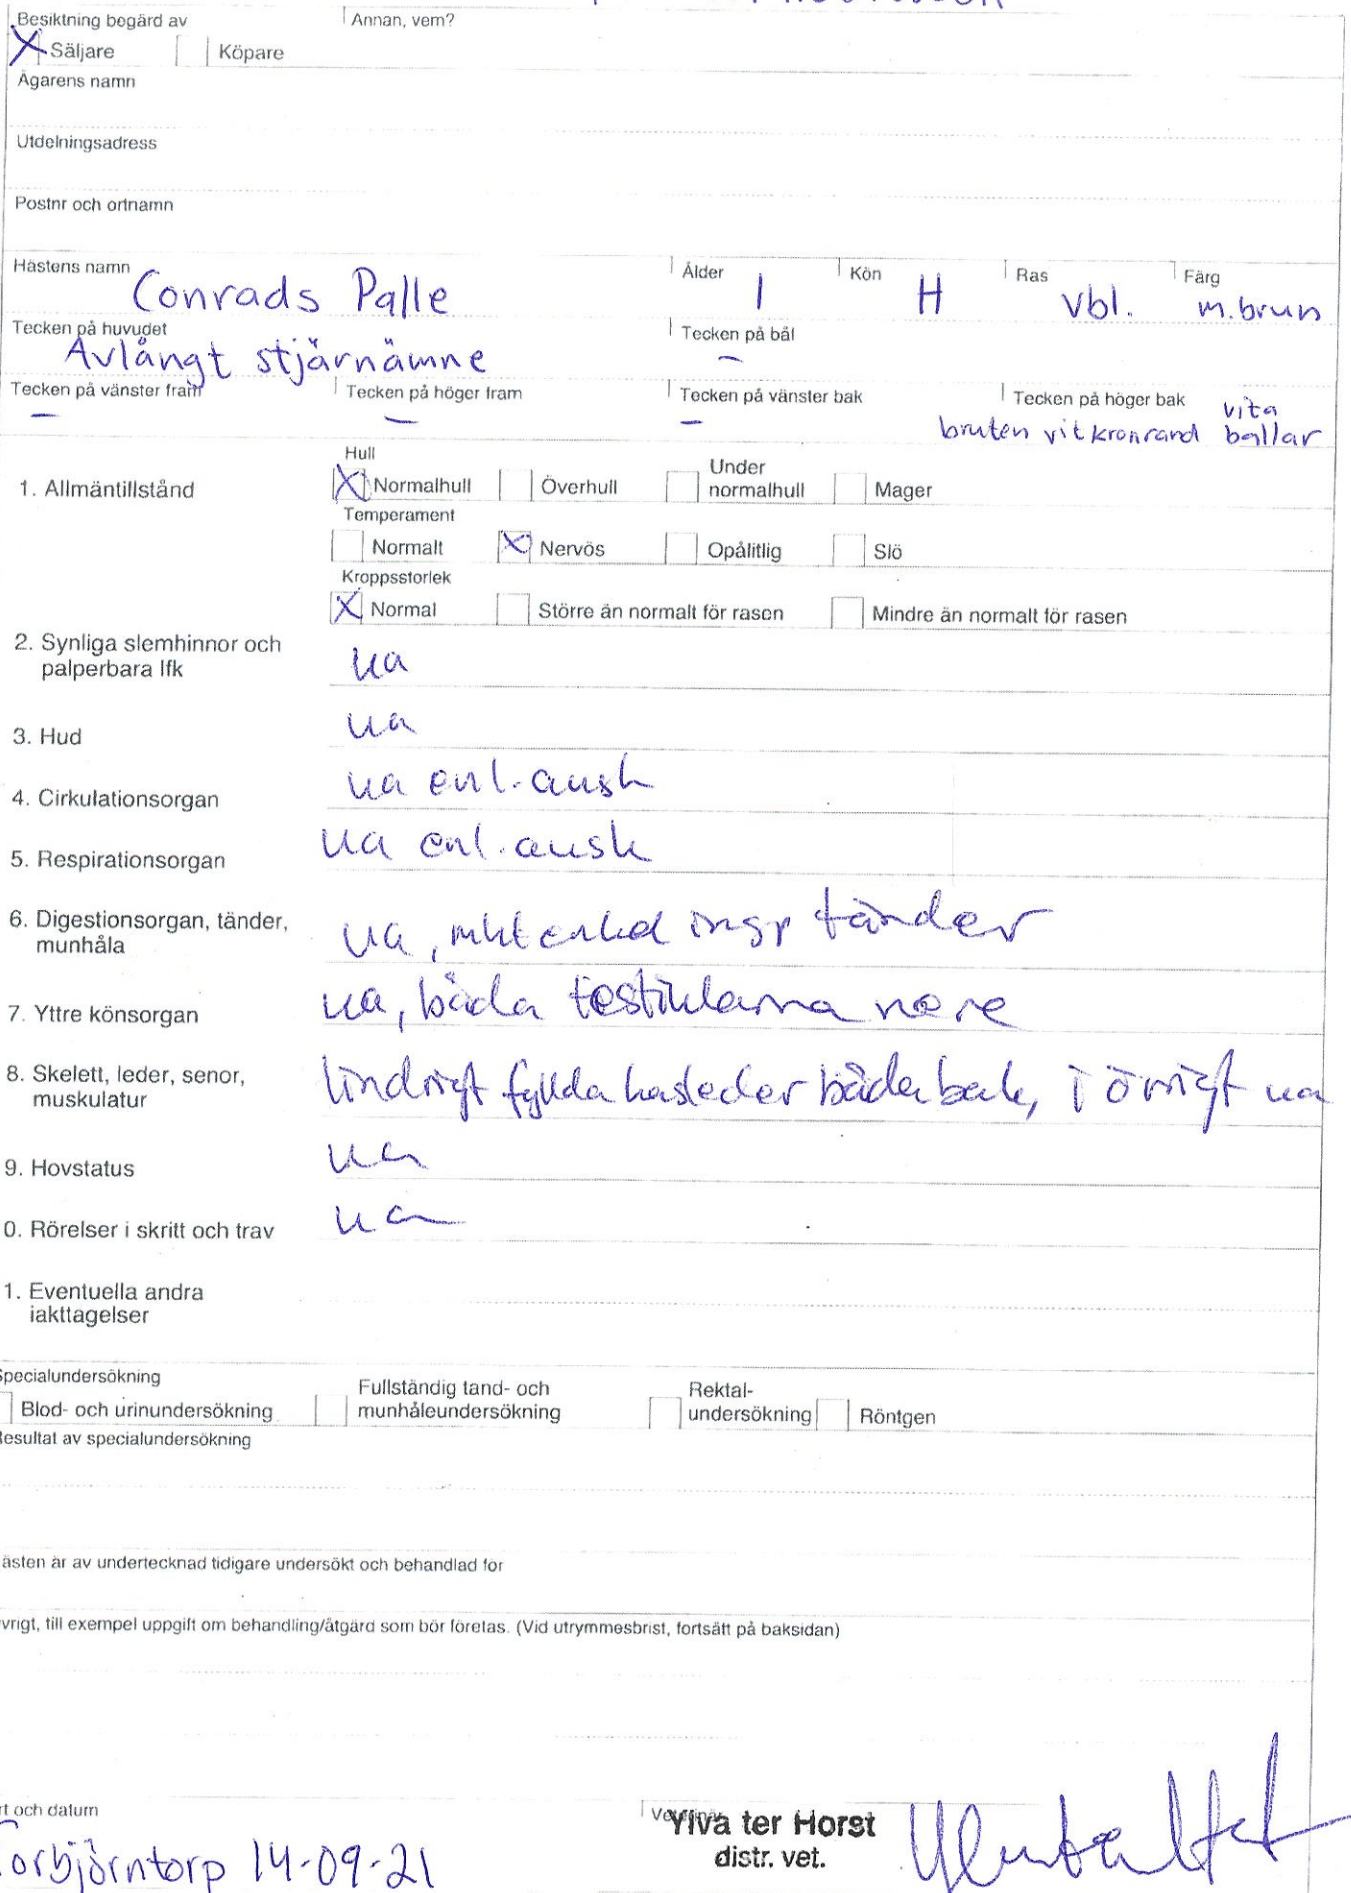 Besiktning begärd av Annan, vem?
Säljare Köpare
Ägarens namn
Utdelningsadress
Postnr och ortnamn
Hästens namn Conrads Palle Ålder 1 Kön H Ras vbl. Färg m.brun
Tecken på huvudet Avlångt stjärnämne Tecken på bål –
Tecken på vänster fram – Tecken på höger fram – Tecken på vänster bak – Tecken på höger bak bruten vit kronrand vita ballar
Hull
1. Allmäntillstånd Normalhull Överhull Under normalhull Mager
Temperament
Normalt Nervös Opålitlig Slö
Kroppsstorlek
Normal Större än normalt för rasen Mindre än normalt för rasen
2. Synliga slemhinnor och
palperbara lfk ua
3. Hud ua
4. Cirkulationsorgan ua enl. ausk
5. Respirationsorgan ua enl. ausk
6. Digestionsorgan, tänder,
munhåla ua, mkt enkel insp tänder
7. Yttre könsorgan ua, båda testiklarna nere
8. Skelett, leder, senor,
muskulatur lindrigt fyllda hasleder båda bak, i övrigt ua
9. Hovstatus ua
0. Rörelser i skritt och trav ua
1. Eventuella andra
iakttagelser
Specialundersökning
Blod- och urinundersökning Fullständig tand- och munhåleundersökning Rektal-undersökning Röntgen
Resultat av specialundersökning
ästen är av undertecknad tidigare undersökt och behandlad för
vrigt, till exempel uppgift om behandling/åtgärd som bör företas. (Vid utrymmesbrist, fortsätt på baksidan)
rt och datum Veterinär
Torbjörntorp 14-09-21 Ylva ter Horst
distr. vet.